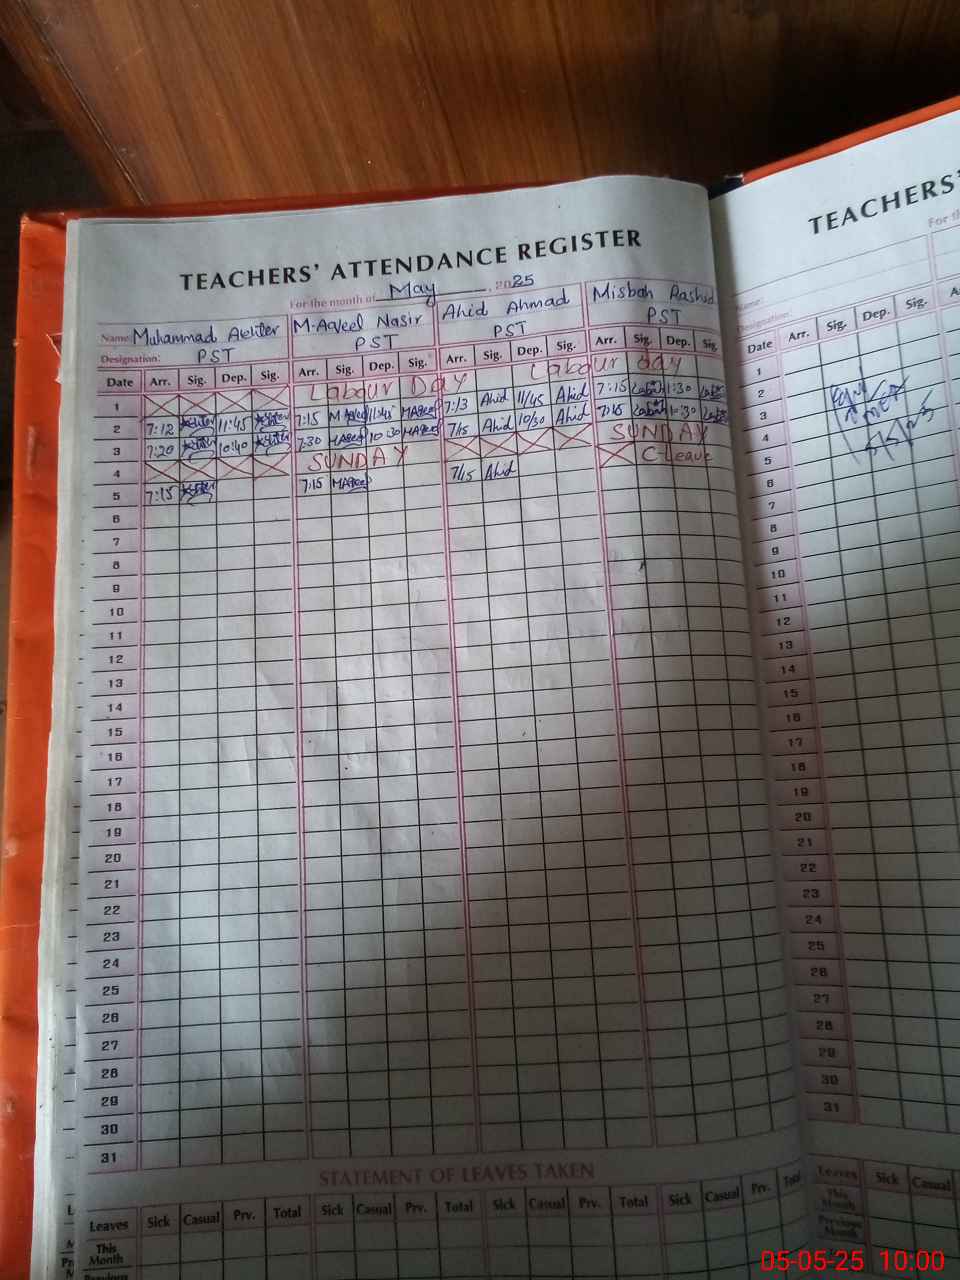 TEACHERS' ATTENDANCE REGISTER
For the month of May, 2025
Name: Muhammad Akhter M. Aqeel Nasir Ahid Ahmad Misbah Rashid
Designation: PST PST PST PST
Date Arr. Sig. Dep. Sig. Arr. Sig. Dep. Sig. Arr. Sig. Dep. Sig. Arr. Sig. Dep. Sig.
1 Labour Day Labour Day
2 7:12 11:45 7:15 MAqeel 11:45 MAqeel 7/13 Ahid 11/45 Ahid 7:15 1:30
3 7:20 10:40 7:30 MAqeel 10:30 MAqeel 7/15 Ahid 10/30 Ahid 7:15 10:30
4 SUNDAY SUNDAY
5 7:15 7:15 MAqeel 7/15 Ahid C-Leave
6
7
8
9
10
11
12
13
14
15
16
17
18
19
20
21
22
23
24
25
26
27
28
29
30
31
STATEMENT OF LEAVES TAKEN
Leaves Sick Casual Prv. Total Sick Casual Prv. Total Sick Casual Prv. Total Sick Casual Prv. Total
This Month
Previous
TEACHERS'
For the
Name:
Designation:
Date Arr. Sig. Dep. Sig.
1
2
3
4
5
6
7
8
9
10
11
12
13
14
15
16
17
18
19
20
21
22
23
24
25
26
27
28
29
30
31
Leaves Sick Casual
This Month
Previous Month
05-05-25 10:00